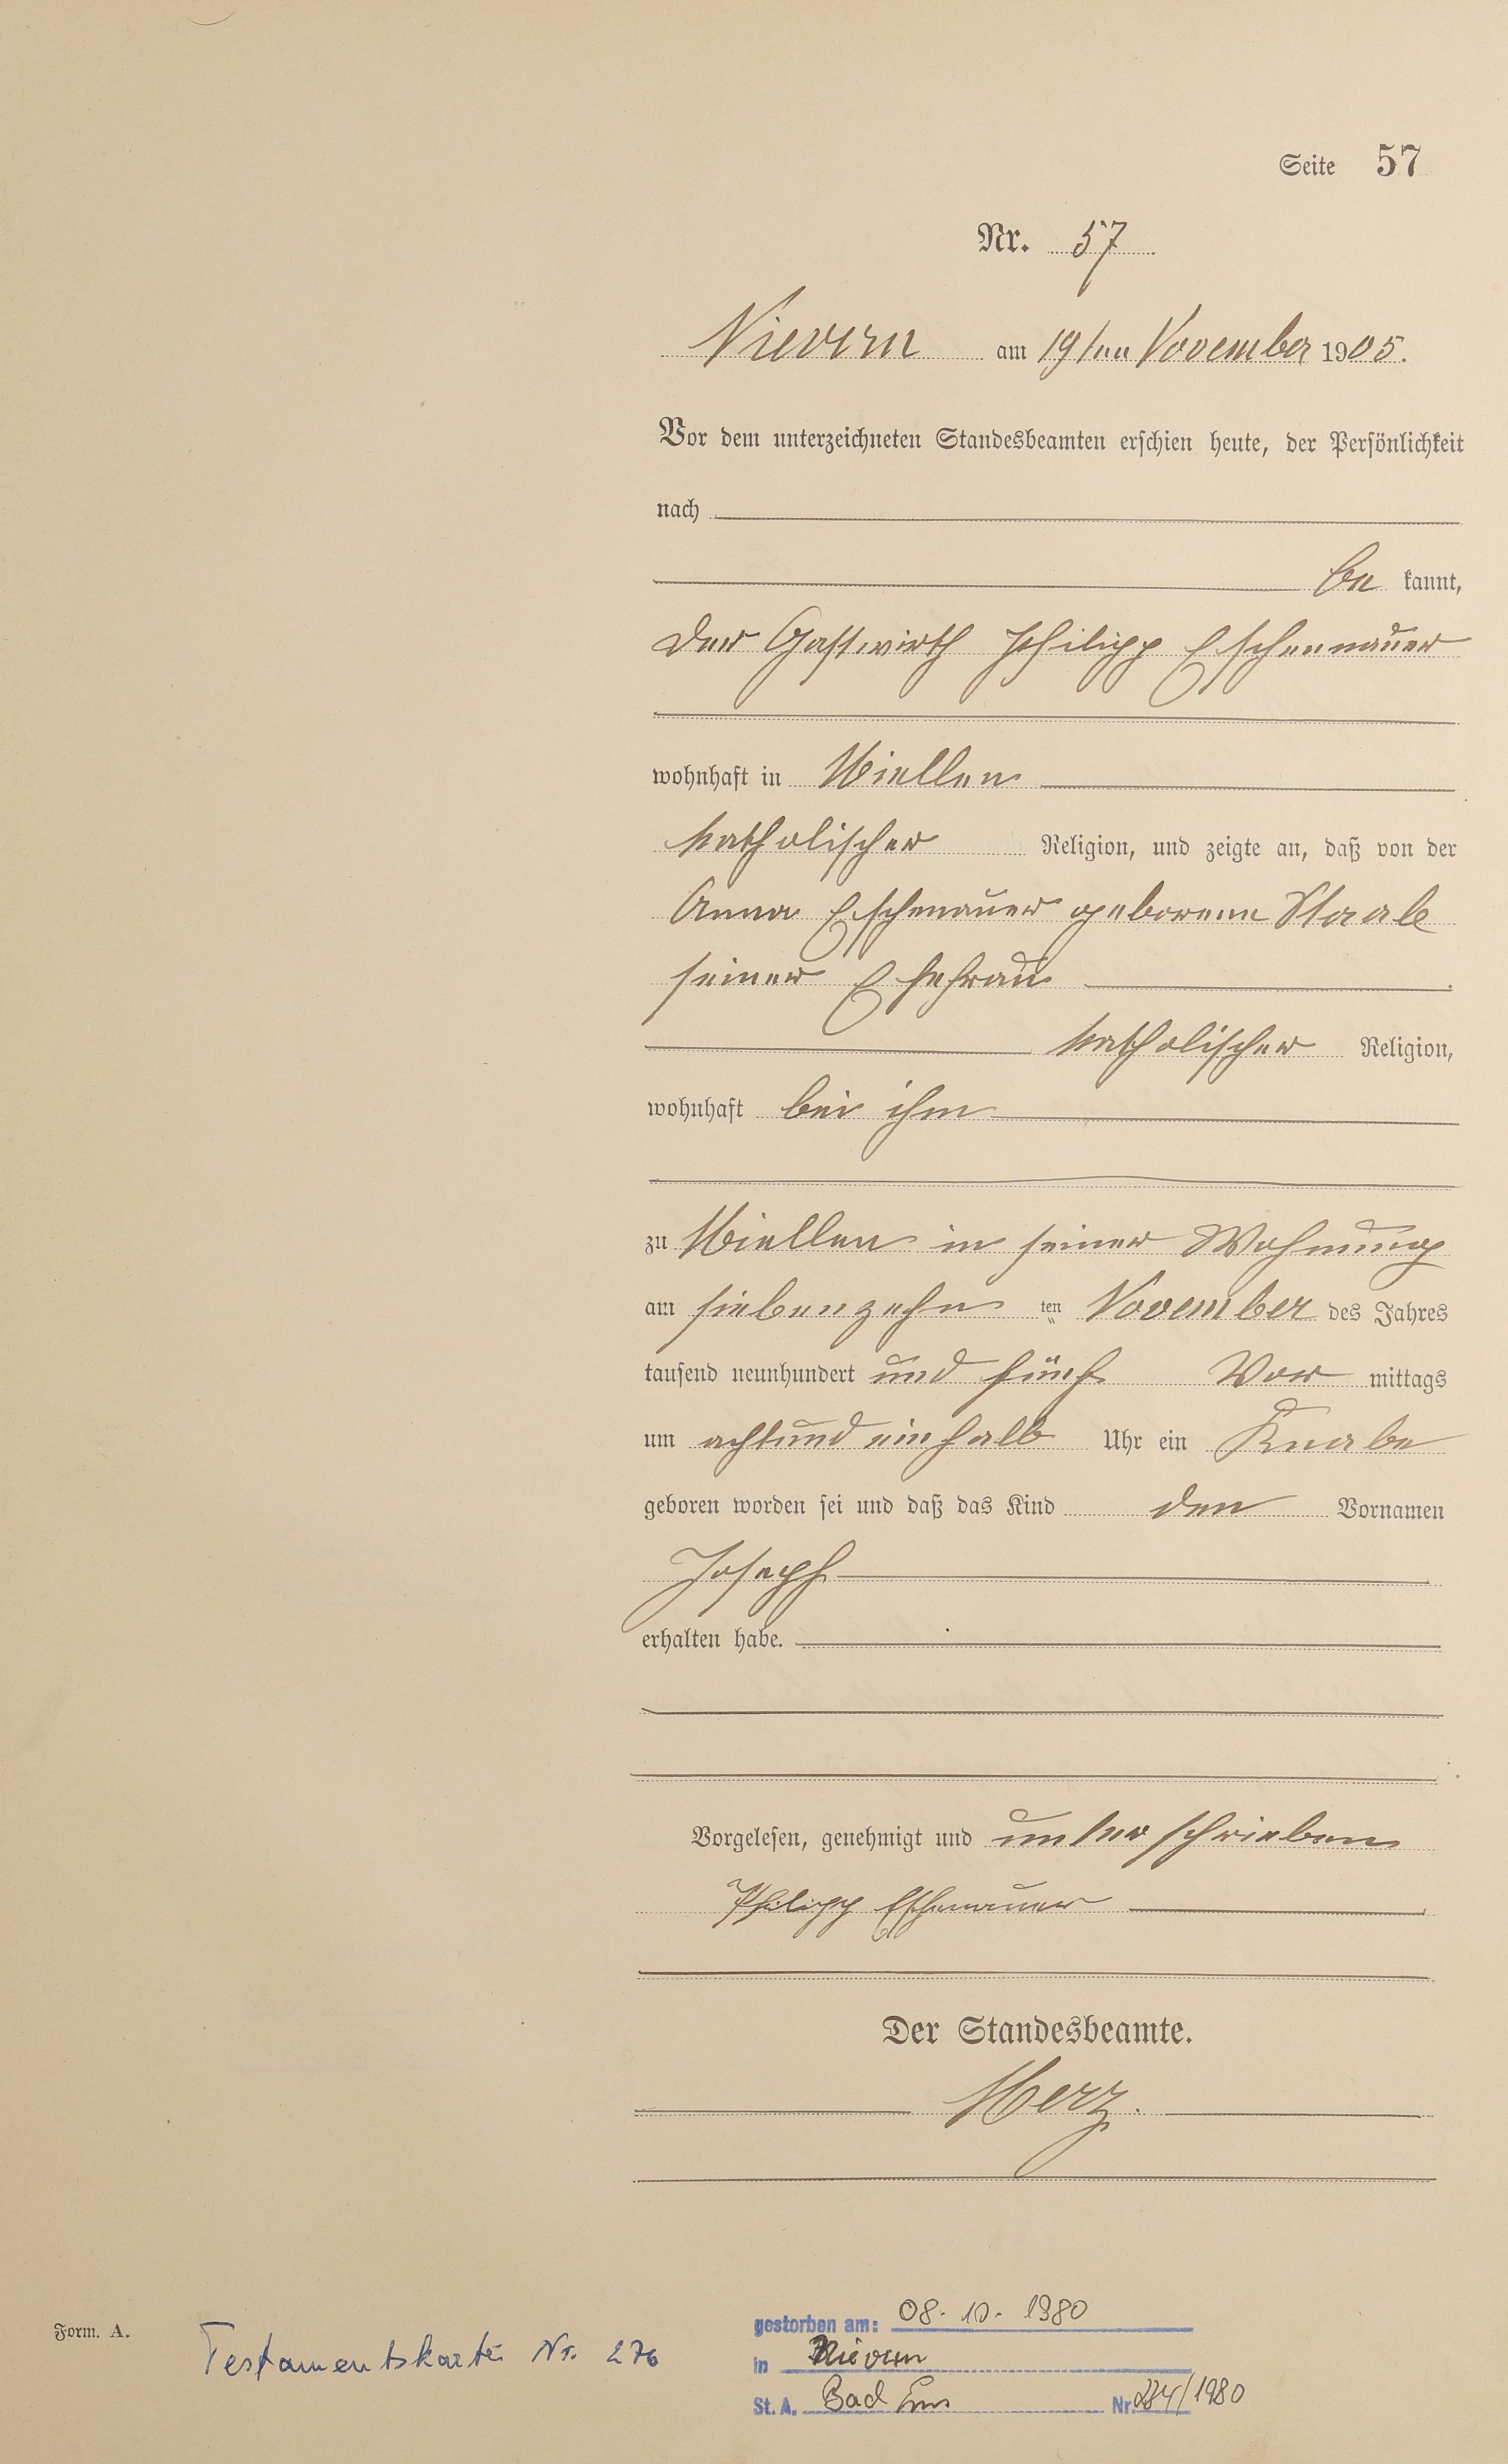 Seite 57
Nr. 57
Nievern am 19ten November 1905.
Vor dem unterzeichneten Standesbeamten erschien heute, der Persönlichkeit
nach
be kannt,
der Gastwirth Philipp Eschenauer
wohnhaft in Miellen
katholischer Religion, und zeigte an, daß von der
Anna Eschenauer geborene Staab
seiner Ehefrau
katholischer Religion,
wohnhaft bei ihm
zu Miellen in seiner Wohnung
am siebenzehn ten November des Jahres
tausend neunhundert und fünf Vor mittags
um achtundeinhalb Uhr ein Knabe
geboren worden sei und daß das Kind den Vornamen
Joseph
erhalten habe.
Vorgelesen, genehmigt und unterschrieben
Philipp Eschenauer
Der Standesbeamte.
Merz.
Form. A.
Testamentskartei Nr. 276
gestorben am: 08. 10. 1980
in Nievern
St. A. Bad Ems Nr. 234/1980